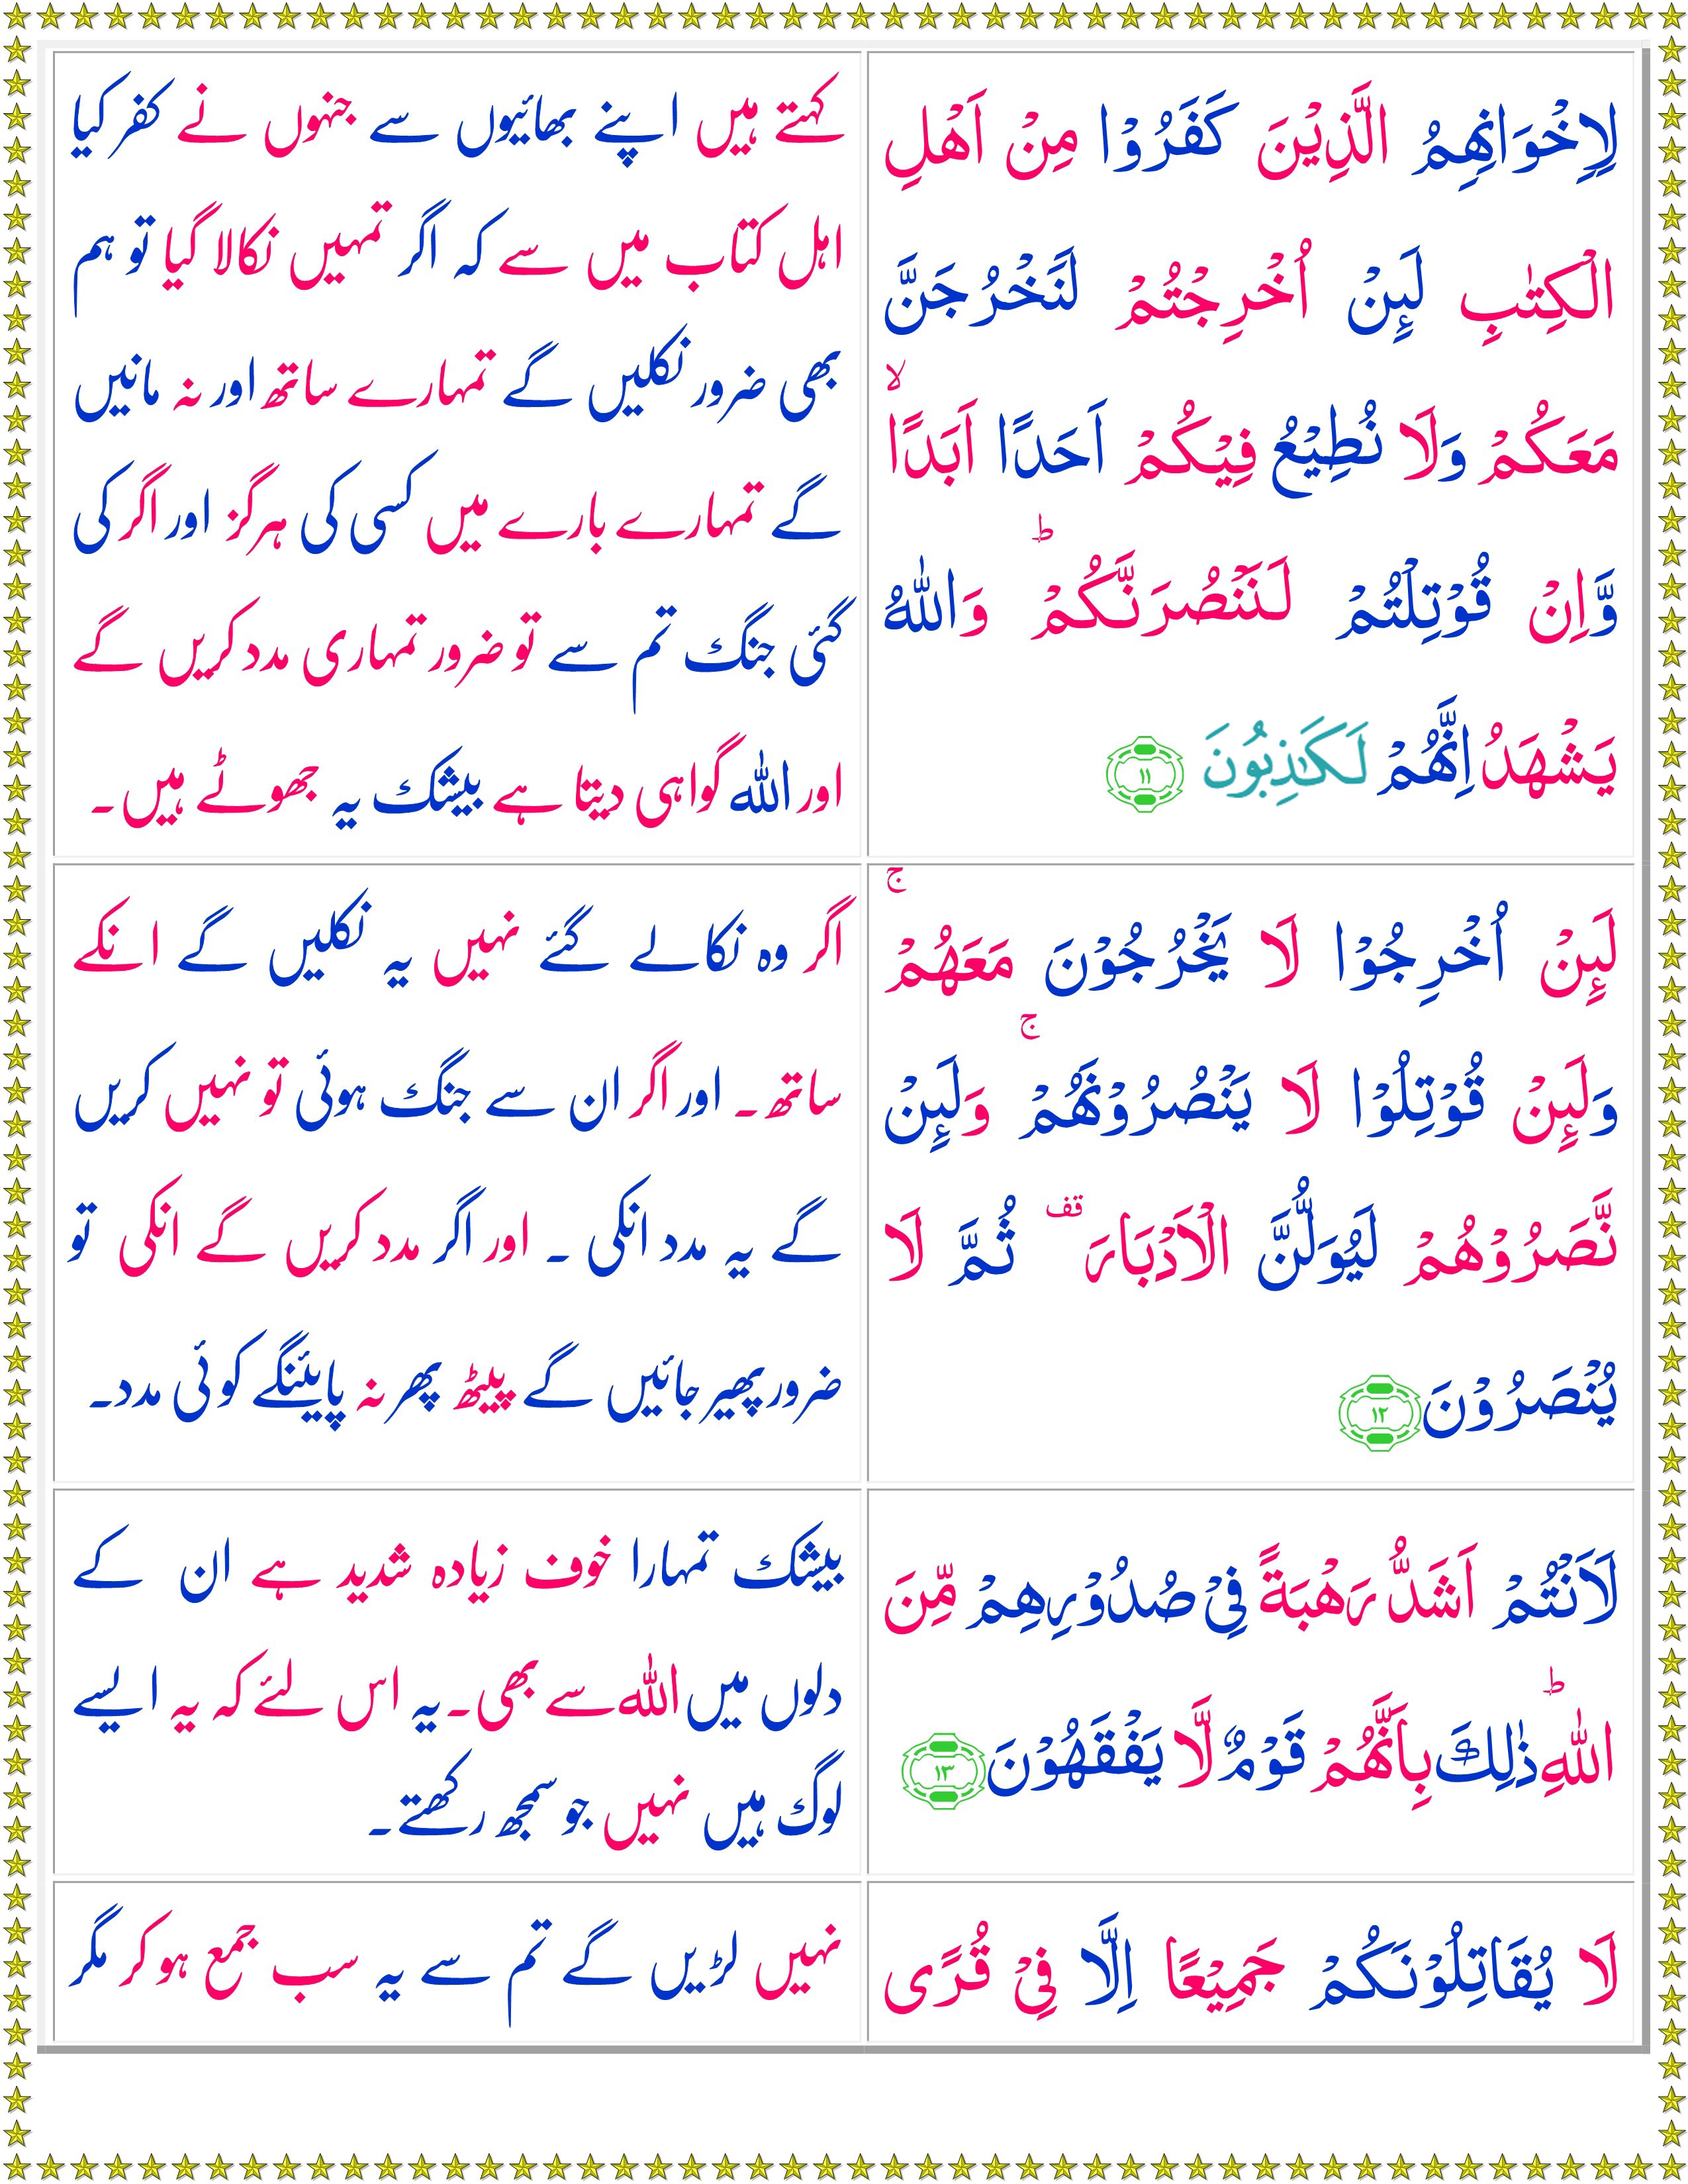 لِاِخْوَانِهِمُ الَّذِيْنَ كَفَرُوْا مِنْ اَهْلِ
الْكِتٰبِ لَئِنْ اُخْرِجْتُمْ لَنَخْرُجَنَّ
مَعَكُمْ وَلَا نُطِيْعُ فِيْكُمْ اَحَدًا اَبَدًا ۙ
وَّاِنْ قُوْتِلْتُمْ لَنَنْصُرَنَّكُمْ ؕ وَاللّٰهُ
يَشْهَدُ اِنَّهُمْ لَكٰذِبُوْنَ ﴿۱۱﴾
کہتے ہیں اپنے بھائیوں سے جنہوں نے کفر کیا
اہل کتاب میں سے کہ اگر تمہیں نکالا گیا تو ہم
بھی ضرور نکلیں گے تمہارے ساتھ اور نہ مانیں
گے تمہارے بارے میں کسی کی ہرگز اور اگر کی
گئی جنگ تم سے تو ضرور تمہاری مدد کریں گے
اور اللہ گواہی دیتا ہے بیشک یہ جھوٹے ہیں۔
لَئِنْ اُخْرِجُوْا لَا يَخْرُجُوْنَ مَعَهُمْ ۚ
وَلَئِنْ قُوْتِلُوْا لَا يَنْصُرُوْنَهُمْ ۚ وَلَئِنْ
نَّصَرُوْهُمْ لَيُوَلُّنَّ الْاَدْبَارَ قف ثُمَّ لَا
يُنْصَرُوْنَ ﴿۱۲﴾
اگر وہ نکالے گئے نہیں یہ نکلیں گے انکے
ساتھ۔ اور اگر ان سے جنگ ہوئی تو نہیں کریں
گے یہ مدد انکی ۔ اور اگر مدد کریں گے انکی تو
ضرور پھیر جائیں گے پیٹھ پھر نہ پائینگے کوئی مدد۔
لَاَنْتُمْ اَشَدُّ رَهْبَةً فِيْ صُدُوْرِهِمْ مِّنَ
اللّٰهِ ؕ ذٰلِكَ بِاَنَّهُمْ قَوْمٌ لَّا يَفْقَهُوْنَ ﴿۱۳﴾
بیشک تمہارا خوف زیادہ شدید ہے ان کے
دلوں میں اللہ سے بھی۔ یہ اس لئے کہ یہ ایسے
لوگ ہیں نہیں جو سمجھ رکھتے۔
لَا يُقَاتِلُوْنَكُمْ جَمِيْعًا اِلَّا فِيْ قُرًى
نہیں لڑیں گے تم سے یہ سب جمع ہو کر مگر